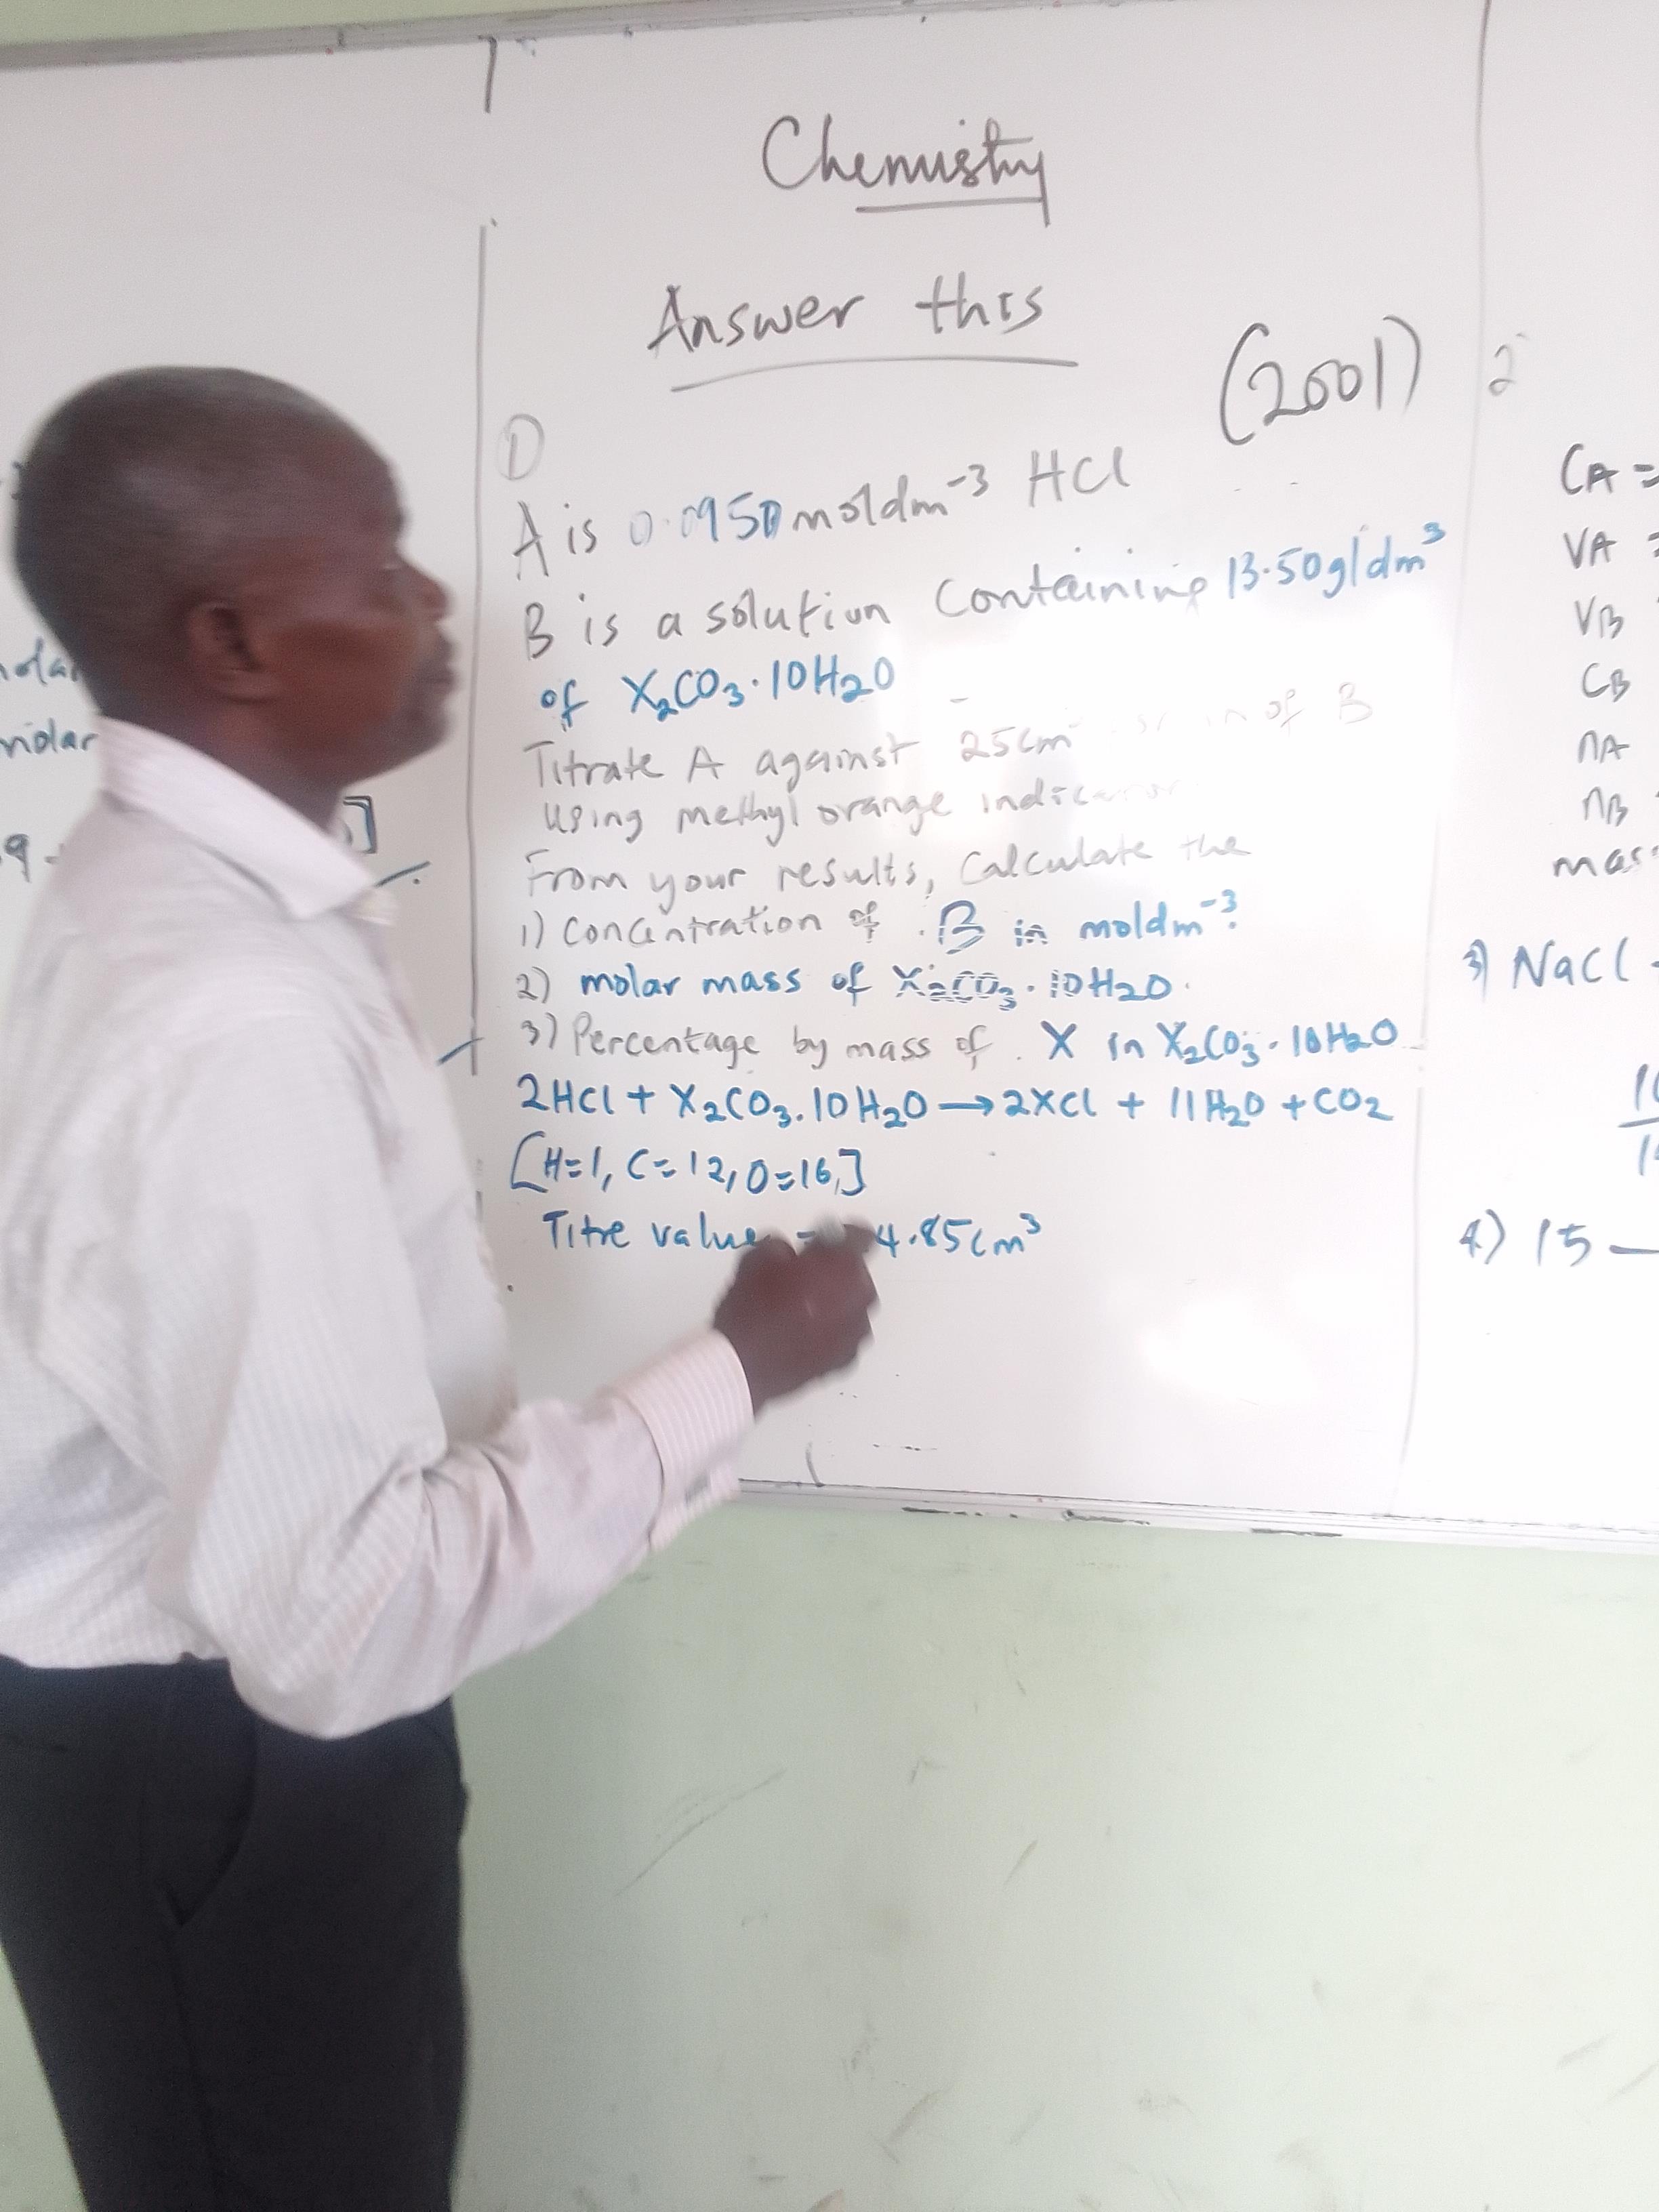 Chemistry
Answer this
(2001)
1)
A is 0.0950 moldm⁻³ HCl
B is a solution Containing 13.50g/dm³
of X₂CO₃·10H₂O
Titrate A against 25cm of B
Using methyl orange indicator
From your results, Calculate the
1) Concentration of B in moldm⁻³
2) molar mass of X₂CO₃·10H₂O.
3) Percentage by mass of X in X₂CO₃·10H₂O
2HCl + X₂CO₃·10H₂O → 2XCl + 11H₂O + CO₂
[H=1, C=12, O=16,]
Titre value 4.85cm³
molar
9
]
2
CA =
VA =
VB
CB
nA
nB
mas
3) NaCl
4) 15 —